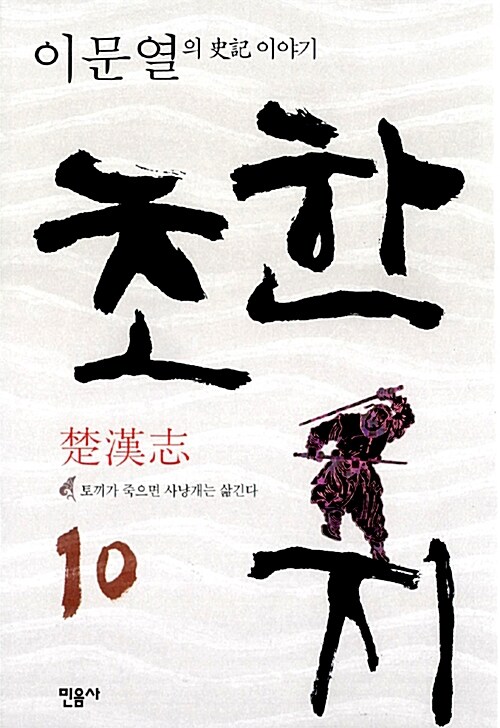 이문열의 史記 이야기
초한지
楚漢志
토끼가 죽으면 사냥개는 삶긴다
10
민음사